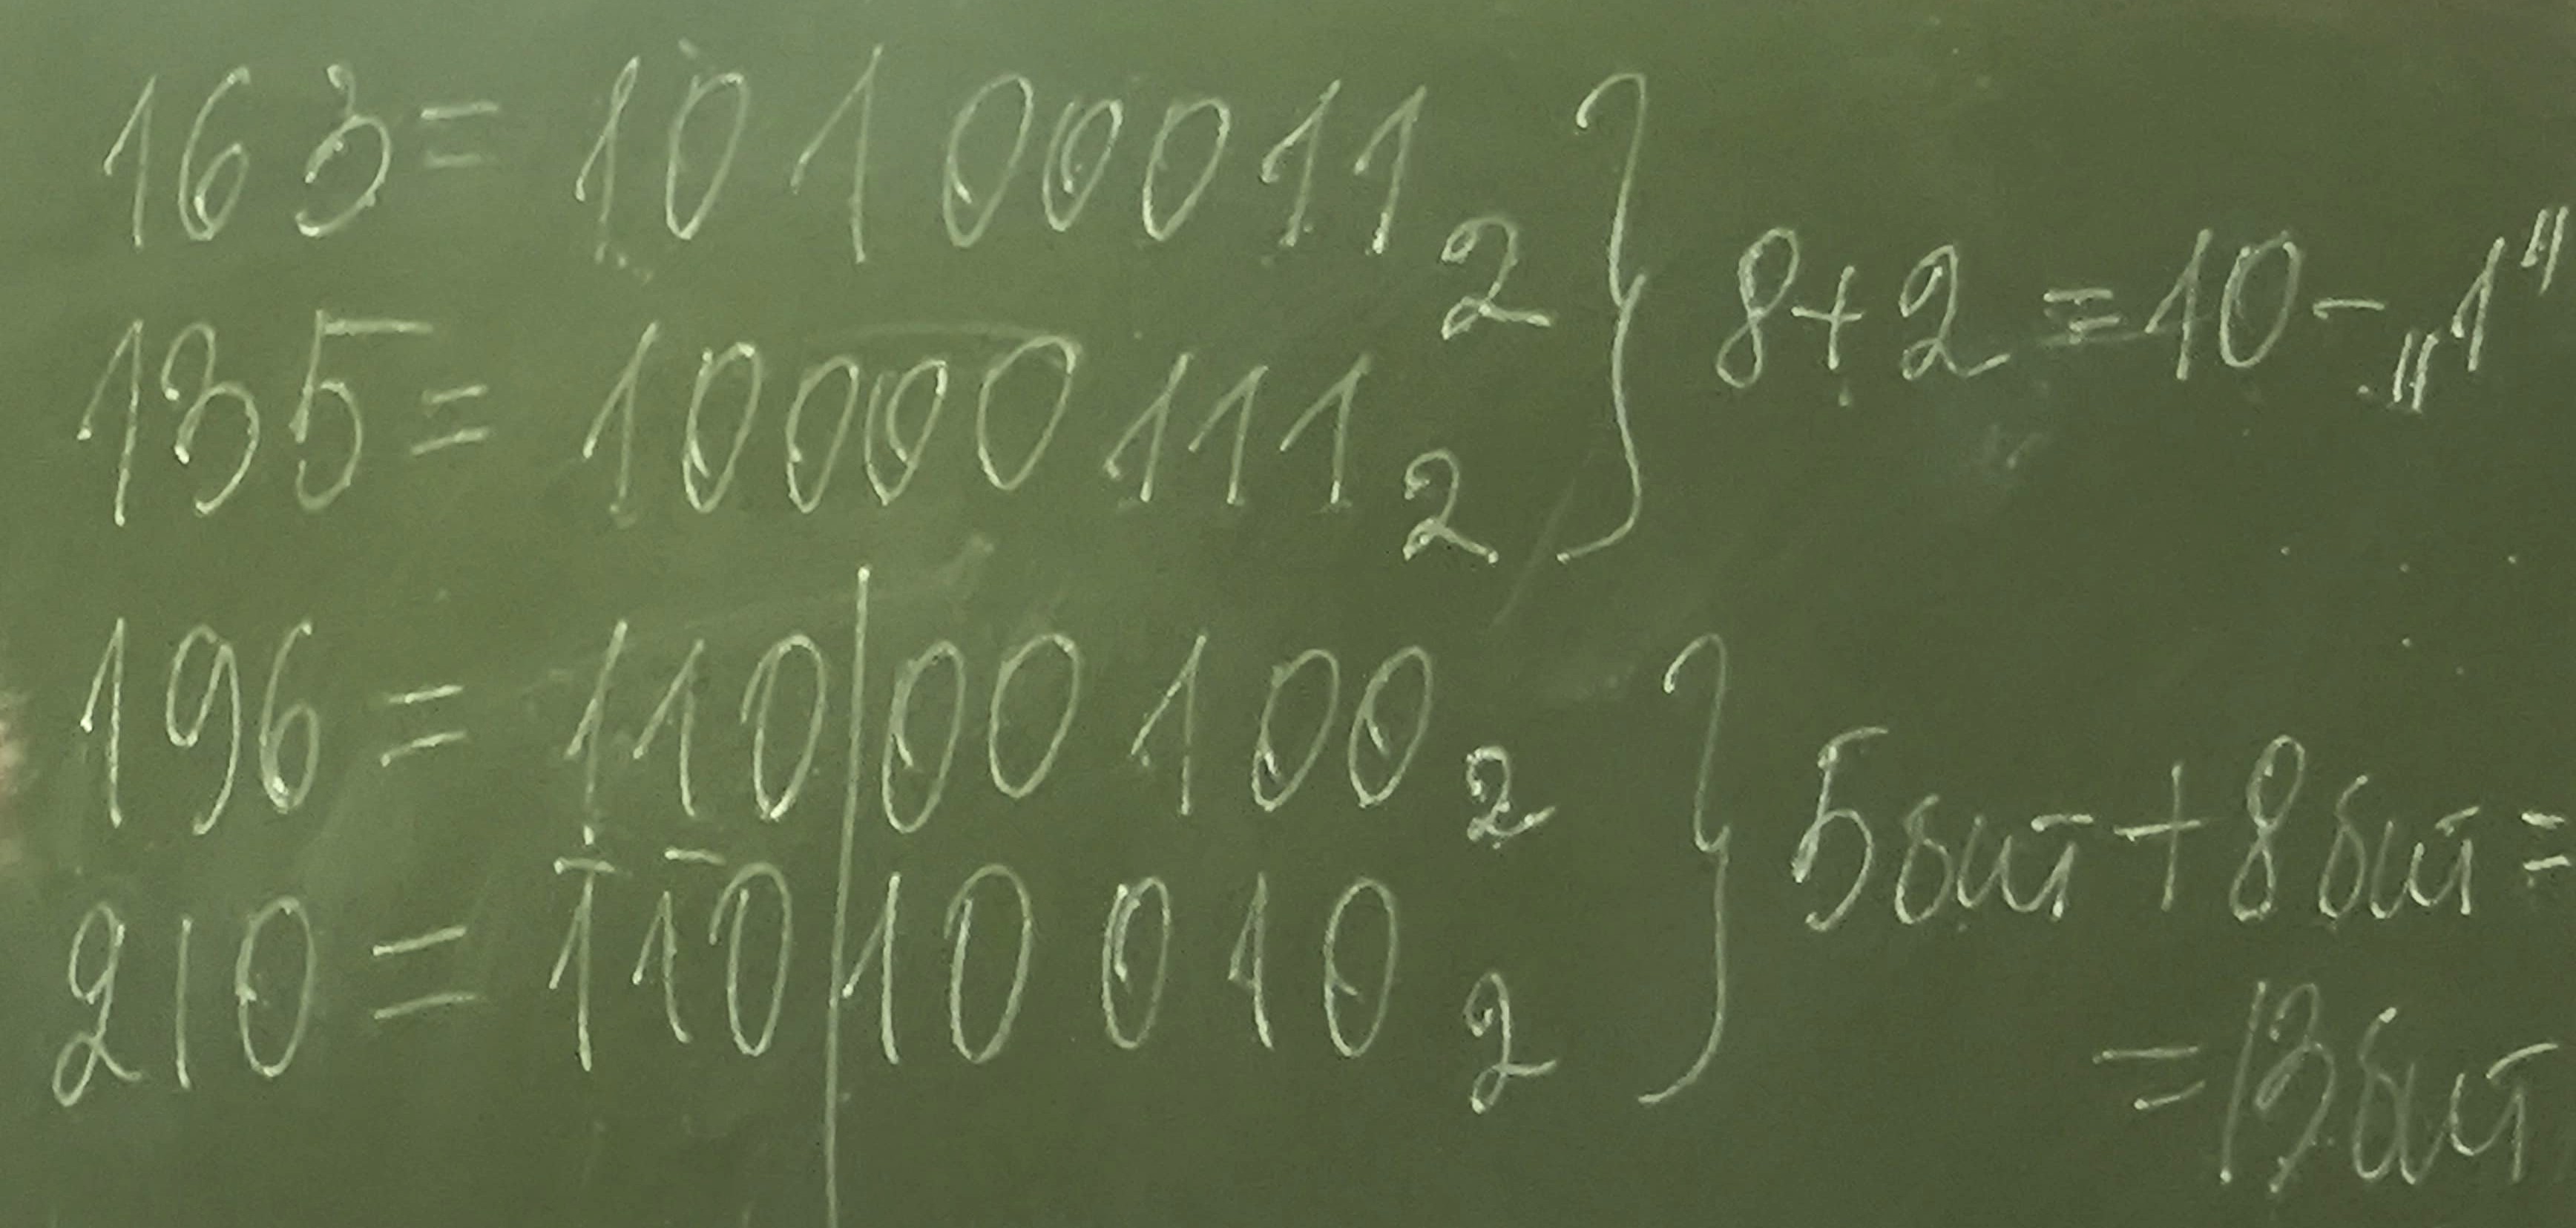 163 = 10100011₂
135 = 10000111₂
8 + 2 = 10 - „1"
196 = 110|00100₂
210 = 110|10010₂
5 бит + 8 бит =
= 13 бит